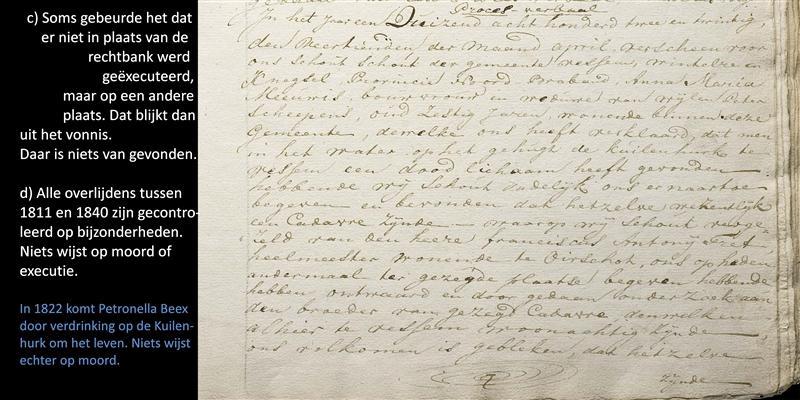 c) Soms gebeurde het dat
er niet in plaats van de
rechtbank werd
geëxecuteerd,
maar op een andere
plaats. Dat blijkt dan
uit het vonnis.
Daar is niets van gevonden.
d) Alle overlijdens tussen
1811 en 1840 zijn gecontro-
leerd op bijzonderheden.
Niets wijst op moord of
executie.
In 1822 komt Petronella Beex
door verdrinking op de Kuilen-
hurk om het leven. Niets wijst
echter op moord.
Proces verbaal
In het jaar een Duizend acht honderd twee en twintig,
den Veertienden der Maand april, verscheen voor
ons Schout der gemeente Vessem, Wintelre en
Knegsel Provincie Noord Braband, Anna Maria
Meeuwis, bouwvrouw en weduwe van wijlen Peter
Scheepens, oud Zestig Jaren, wonende binnen deze
Gemeente, dewelke ons heeft verklaard, dat men
in het water op het gehugt de kuilenhurk te
Vessem een dood lichaam heeft gevonden
hebbende wij Schout dadelijk ons er naartoe
begeven en bevonden dat hetzelve wezentlijk
een Cadavre Zijnde waarop wij Schout verge-
zeld van den heere franciscus Antonij
heelmeester wonende te Oirschot, ons op heden
andermaal ter gezegde plaatse begeven hebbende
hebben ontwaard en door gedaan onderzoek aan
den broeder van gezegd Cadavre denwelken
alhier te vessem woonachtig Zijnde
ons volkomen is gebleken, dat hetzelve
Zijnde